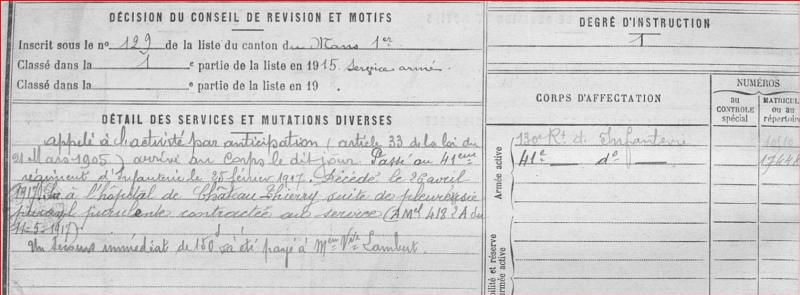 DÉCISION DU CONSEIL DE REVISION ET MOTIFS
Inscrit sous le no 129 de la liste du canton du Mans 1er
Classé dans la 1 e partie de la liste en 1915. Service armé.
Classé dans la e partie de la liste en 19 .
DÉTAIL DES SERVICES ET MUTATIONS DIVERSES
appelé à l'activité par anticipation (article 33 de la loi du
21 Mars 1905) arrivé au corps le dit jour. Passé au 41eme
régiment d'Infanterie le 25 février 1917. Décédé le 26 avril
1917 à l'hôpital de Château-Thierry suite de pleurésie
purulente contractée au service (AMel 418 2A du
11-5-1917)
Un secours immédiat de 150 f a été payé à Mme Vve Lambert.
DEGRÉ D'INSTRUCTION
1
CORPS D'AFFECTATION
NUMÉROS
au CONTROLE spécial
MATRICULE ou au répertoire
Armée active
130e Rt d'Infanterie
41e do
ilité et réserve
armée active